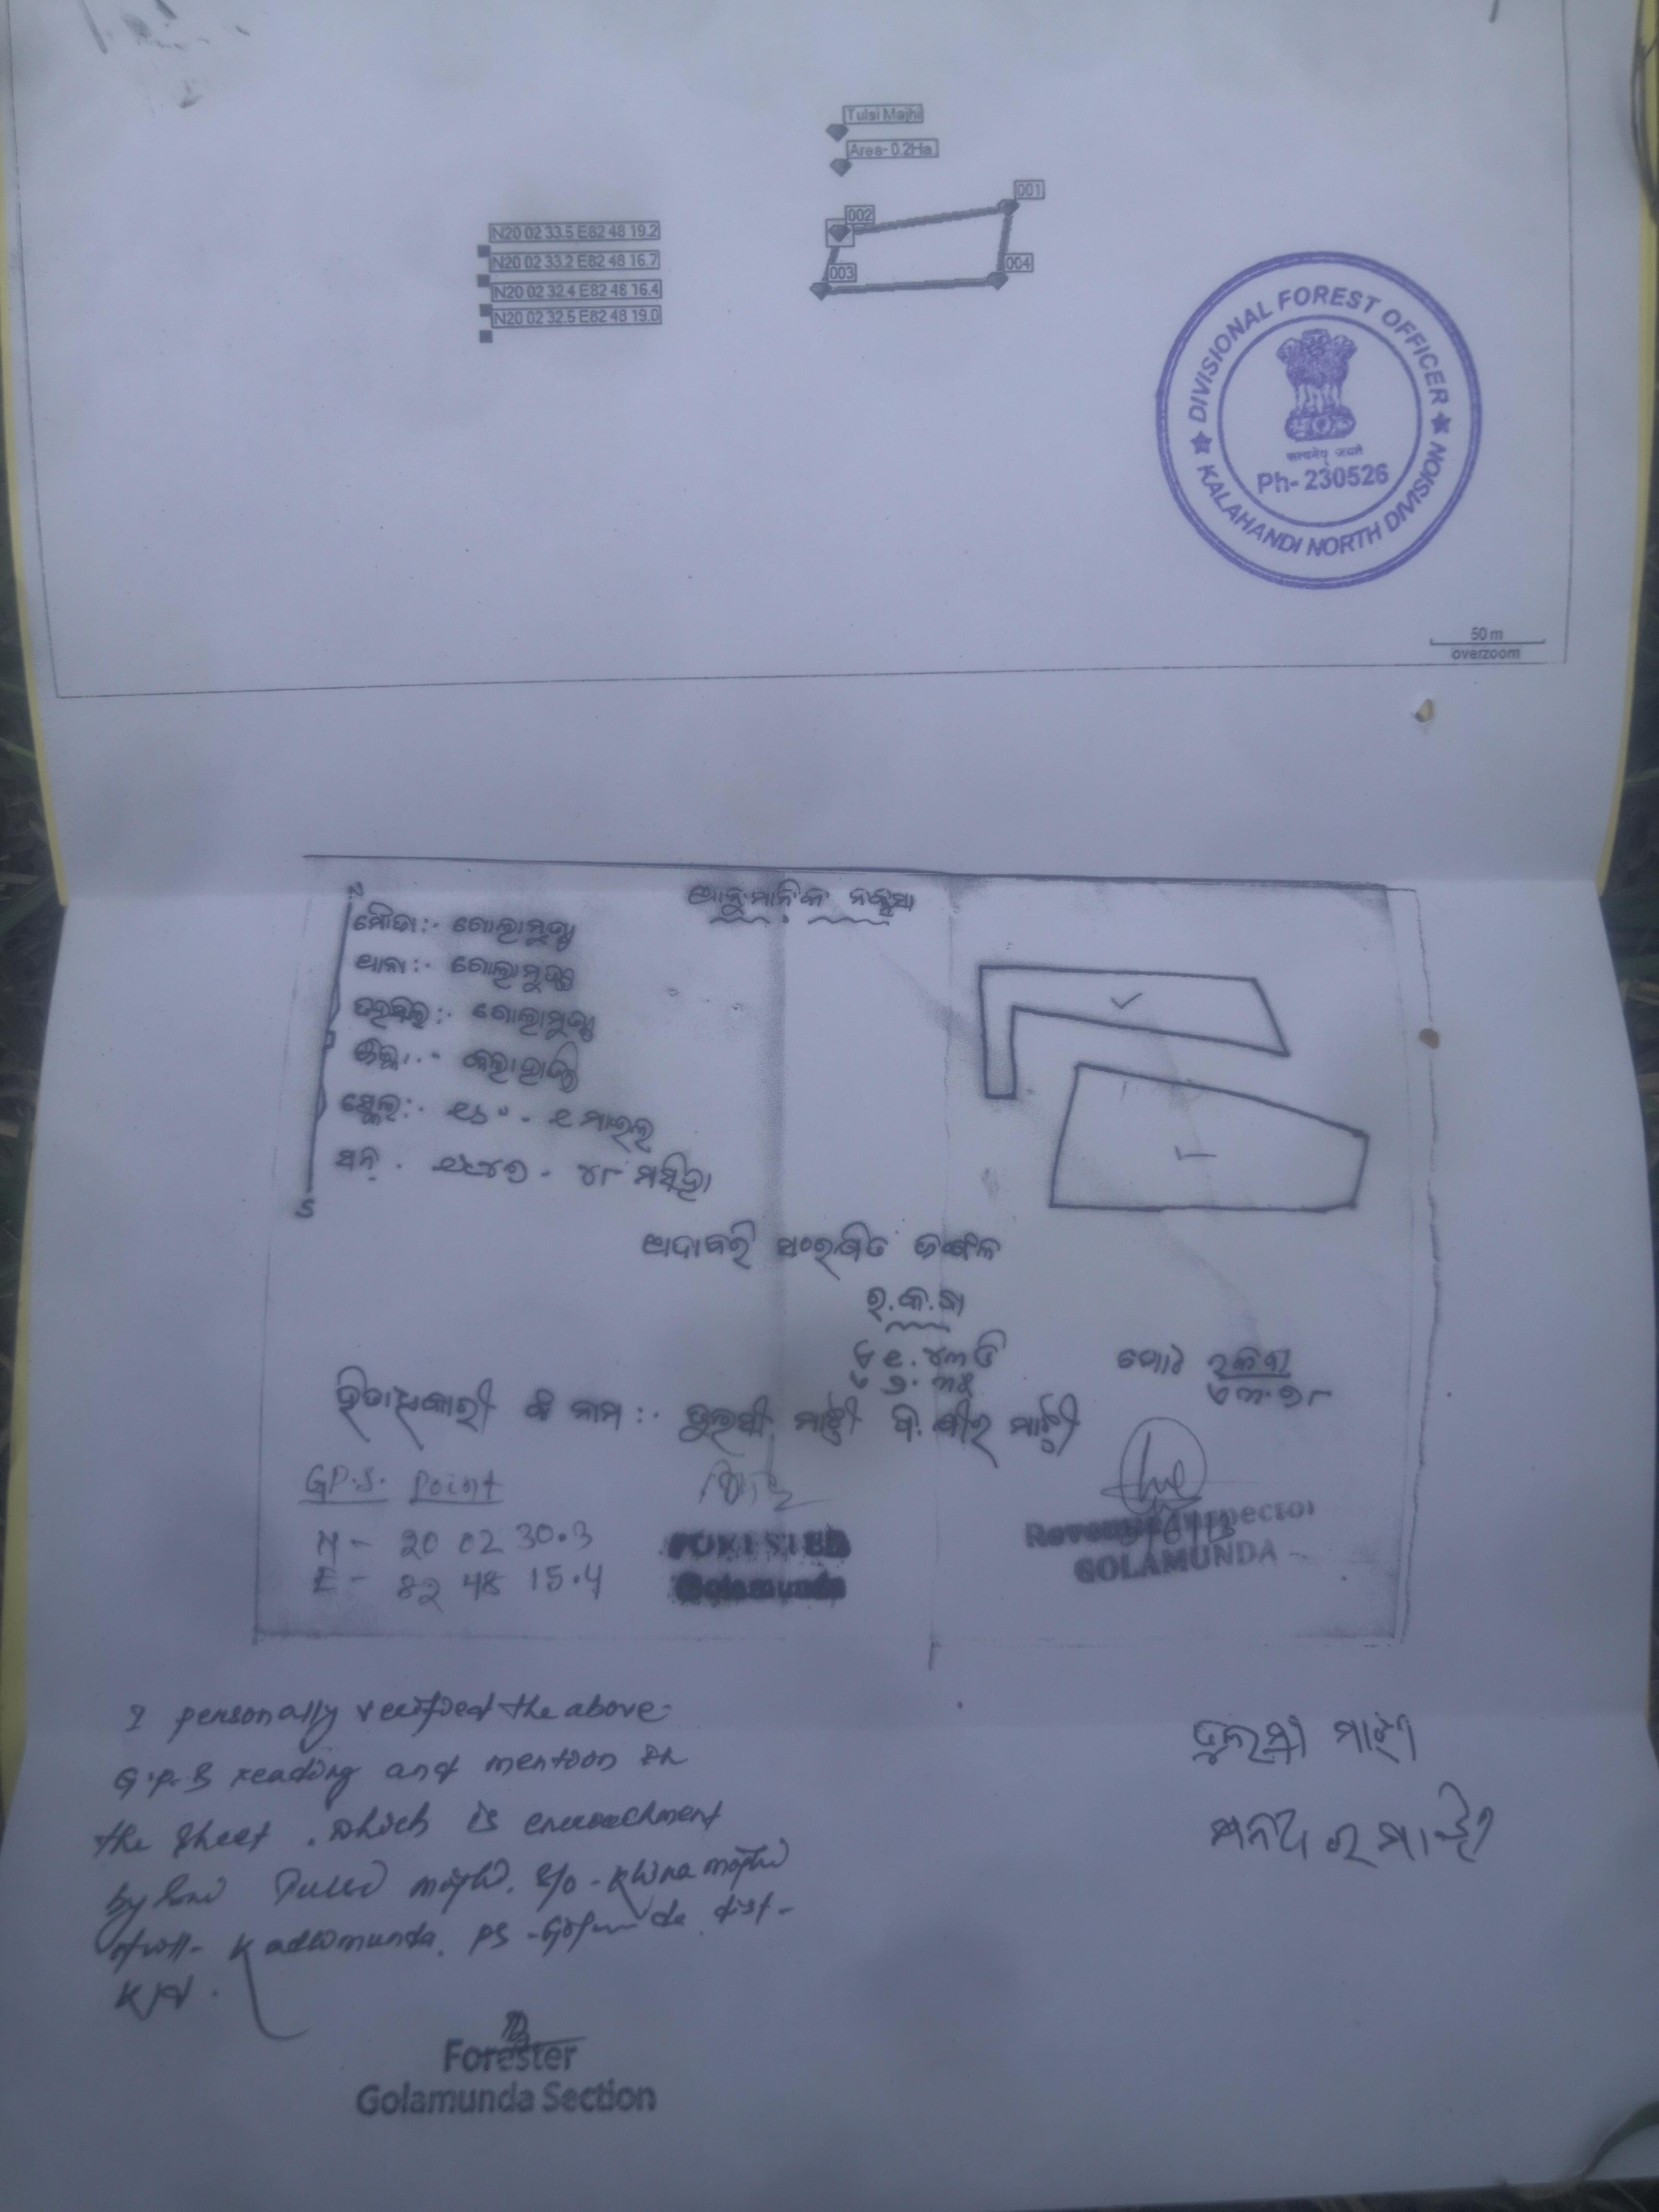 Tulsi Majhi
Area- 0.2Ha
001
002
003
004
N20 02 33.5 E82 48 19.2
N20 02 33.2 E82 48 16.7
N20 02 32.4 E82 48 16.4
N20 02 32.5 E82 48 19.0
DIVISIONAL FOREST OFFICER
सत्यमेव जयते
Ph- 230526
KALAHANDI NORTH DIVISION
50 m
overzoom
ଆନୁମାନିକ ନକ୍ସା
N
ମୌଜା:- ଗୋଲାମୁଣ୍ଡା
ଥାନା:- ଗୋଲାମୁଣ୍ଡା
ତହସିଲ:- ଗୋଲାମୁଣ୍ଡା
ଜିଲ୍ଲା:- କଳାହାଣ୍ଡି
ସ୍କେଲ:- ୧୬" - ୧ ମାଇଲ
ସନ୍ -
S
ସଂରକ୍ଷିତ ଜଙ୍ଗଲ
ର.କ.ବା
ମୋଟ ରକବା
ହିତାଧିକାରୀ ଙ୍କ ନାମ:- ତୁଲସୀ ମାଝୀ ପି. ମାଝୀ
G.P.S. Point
N- 20 02 30.3
E- 82 48 15.4
FORESTER
Golamunda
Revenue Inspector
GOLAMUNDA
I personally verified the above
G.P.S reading and mention in
the sheet. which is encroachment
by Tulsi majhi. S/o - Khira majhi
of vill- Kadlimunda. PS - dist-
ତୁଲସୀ ମାଝୀ
ମାଝୀ
Forester
Golamunda Section